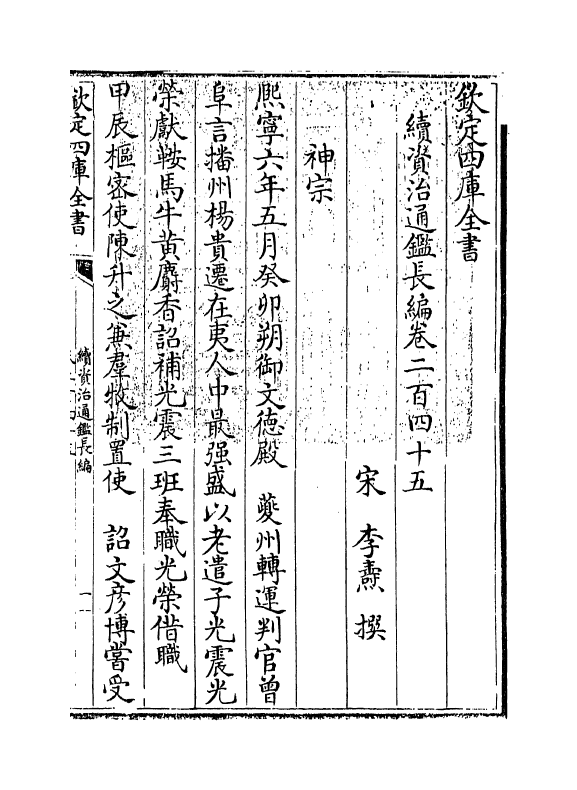 欽定四庫全書
續資治通鑑長編卷二百四十五
宋 李燾 撰
神宗
熈寧六年五月癸卯朔御文徳殿 夔州轉運判官曾
阜言播州楊貴遷在夷人中最强盛以老遣子光震光
榮獻鞍馬牛黄麝香詔補光震三班奉職光榮借職
甲辰樞密使陳升之兼羣牧制置使 詔文彦博嘗受
欽定四庫全書
續資治通鑑長編
一